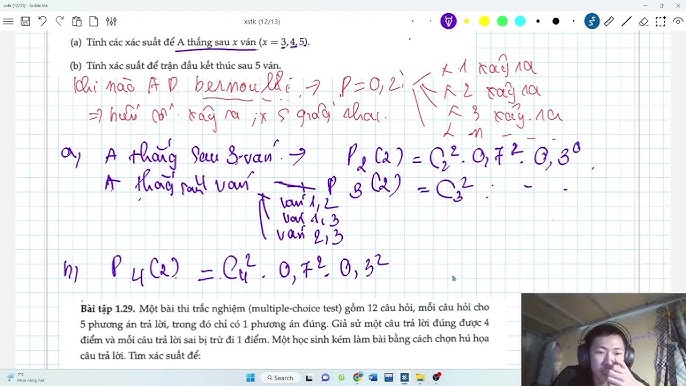 xstk (12/13) - Scrble Ink
xstk (12/13)
(a) Tính các xác suất để A thắng sau x ván (x = 3,4,5).
(b) Tính xác suất để trận đấu kết thúc sau 5 ván.
khi nào A D bernoulli → P=0,2
x 1 xảy ra
x 2 xảy ra
x 3 xảy ra
x n
a) A thắng sau 3 ván → P₂(2) = C₂² . 0,7² . 0,3⁰
A thắng ván P₃(2) = C₃² .
ván 1,2
ván 1,3
ván 2,3
b) P₄(2) = C₄² . 0,7² . 0,3²
Bài tập 1.29. Một bài thi trắc nghiệm (multiple-choice test) gồm 12 câu hỏi, mỗi câu hỏi cho
5 phương án trả lời, trong đó chỉ có 1 phương án đúng. Giả sử một câu trả lời đúng được 4
điểm và mỗi câu trả lời sai bị trừ đi 1 điểm. Một học sinh kém làm bài bằng cách chọn hú họa
câu trả lời. Tìm xác suất để:
Search